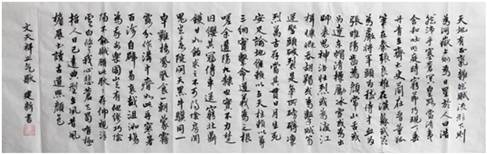 天地有正氣雜然賦流形下則
為河嶽上則為日星於人曰浩
然沛乎塞蒼冥皇路當清夷
含和吐明庭時窮節乃見一一垂
丹青在齊太史簡在晉董狐
筆在秦張良椎在漢蘇武節
為嚴將軍頭為嵇侍中血為
張睢陽齒為顏常山舌或
為遼東帽清操厲冰雪或為出
師表鬼神泣壯烈或為渡江
楫慷慨吞胡羯或為擊賊笏
逆豎頭破裂是氣所磅礴凜
烈萬古存當其貫日月生死
安足論地維賴以立天柱賴以尊
三綱實繫命道義為之根
嗟予遘陽九隸也實不力楚
囚纓其冠傳車送窮北鼎
鑊甘如飴求之不可得陰房
闃鬼火春院閟天黑牛驥同一
皂雞棲鳳凰食一朝蒙霧
露分作溝中瘠如此再寒暑
百沴自辟易哀哉沮洳場
為我安樂國豈有他繆巧陰
陽不能賊顧此耿耿在仰視浮
雲白悠悠我心悲蒼天曷有極
哲人日已遠典型在夙昔風
簷展書讀古道照顏色
文天祥正氣歌 建新書